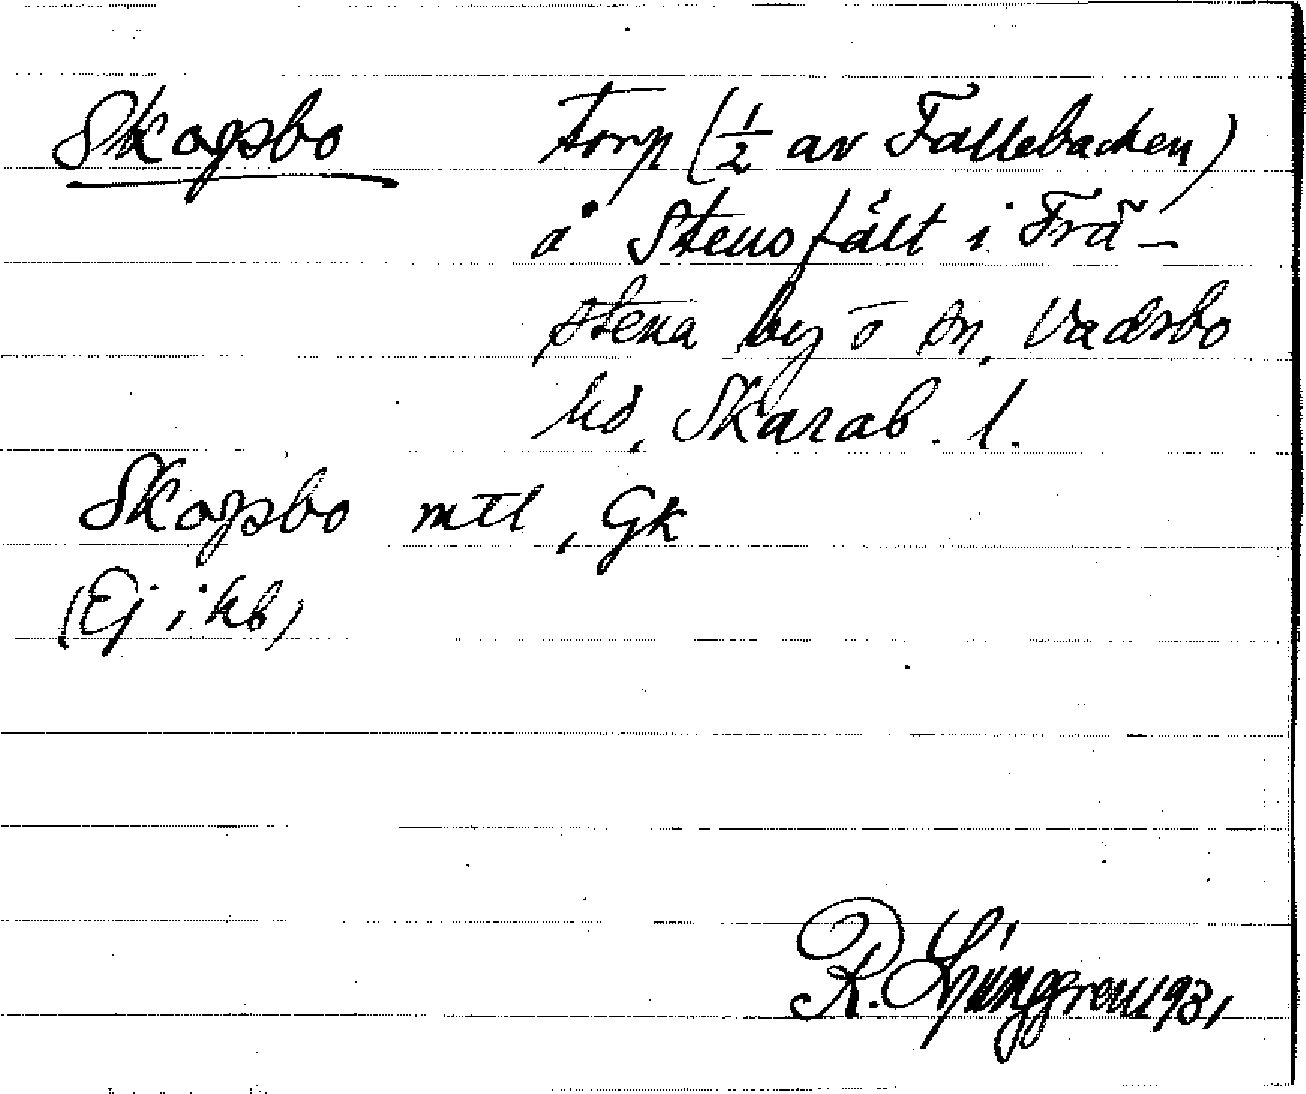 Skogsbo torp (1/2 av Fallebacken)
å Stensfält i Frä-
stena by o sn, Vadsbo
hd, Skarab. l.
Skogsbo mtl, Gk
(Ej i kb)
R. Ljunggren 1931